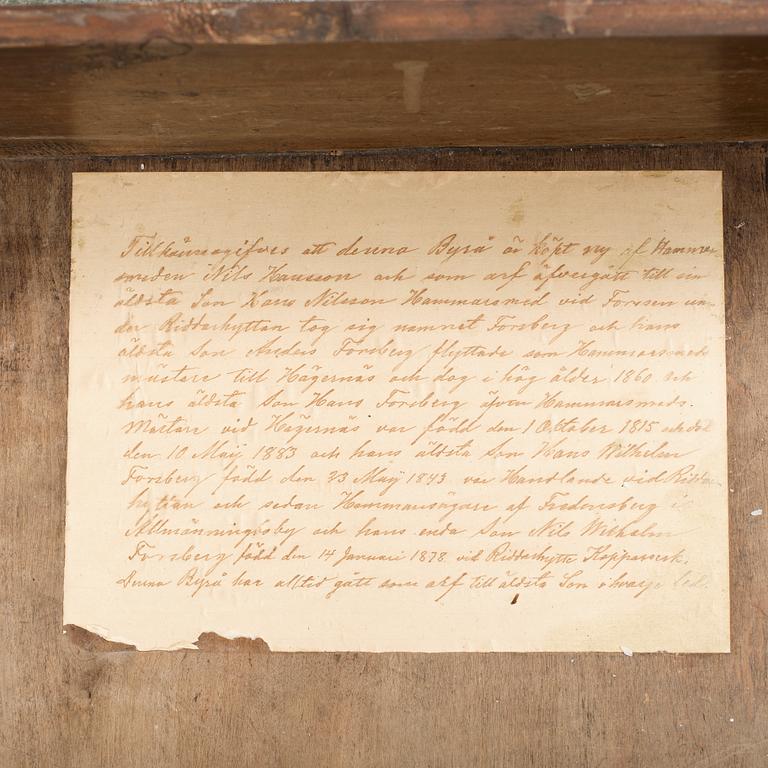 Tillkännagifves att denna Byrå är köpt ny af Hammar
smeden Nils Hansson och som arf öfvergått till sin
äldsta Son Hans Nilsson Hammarsmed vid Forssen un-
der Riddarhyttan tog sig namnet Forsberg och hans
äldsta Son Anders Forsberg flyttade som Hammarsmeds
mästare till Hägernäs och dog i hög ålder 1860 och
hans äldsta Son Hans Forsberg äfven Hammarsmeds.
Mästare vid Hägernäs var född den 1 Oktober 1815 och död
den 10 Maij 1883 och hans äldsta Son Hans Wilhelm
Forsberg född den 23 Maij 1843 var Handlande vid Ridda
hyttan och sedan Hammarsägare af Fredriksberg i
Allmänningsby och hans enda Son Nils Wilhelm
Forsberg född den 14 Januari 1878 vid Riddarhytte Kopparverk.
Denna Byrå har alltid gått som arf till äldsta Son i hvarje led.